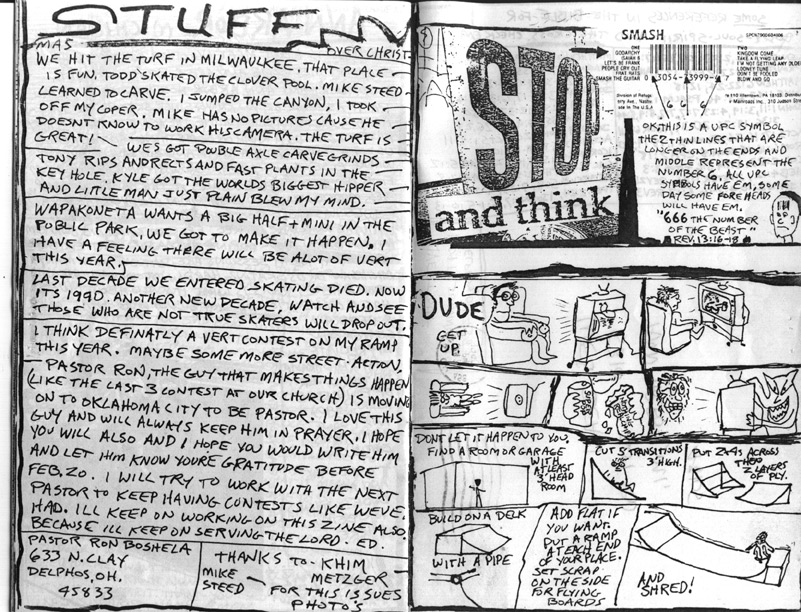 STUFF
OVER CHRIST-
MAS
WE HIT THE TURF IN MILWAUKEE, THAT PLACE
IS FUN. TODD SKATED THE CLOVER TOOL. MIKE STEED
LEARNED TO CARVE. I JUMPED THE CANYON, I TOOK
OFF MY COPER. MIKE HAS NO PICTURES CAUSE HE
DOESNT KNOW TO WORK HIS CAMERA. THE TURF IS
GREAT!
WES GOT DOUBLE AXLE CARVE GRINDS
TONY RIPS AND RECTS AND FAST PLANTS IN THE
KEY HOLE, KYLE GOT THE WORLDS BIGGEST HIPPER
AND LITTLE MAN JUST PLAIN BLEW MY MIND.
WAPAKONETA WANTS A BIG HALF + MINI IN THE
PUBLIC PARK, WE GOT TO MAKE IT HAPPEN. I
HAVE A FEELING THERE WILL BE ALOT OF VERT
THIS YEAR.
LAST DECADE WE ENTERED SKATING DIED. NOW
ITS 1990. ANOTHER NEW DECADE, WATCH AND SEE
THOSE WHO ARE NOT TRUE SKATERS WILL DROP OUT.
I THINK DEFINATLY A VERT CONTEST ON MY RAMP
THIS YEAR. MAYBE SOME MORE STREET ACTION.
PASTOR RON, THE GUY THAT MAKES THINGS HAPPEN
(LIKE THE LAST 3 CONTEST AT OUR CHURCH) IS MOVING
ON TO OKLAHOMA CITY TO BE PASTOR. I LOVE THIS
GUY AND WILL ALWAYS KEEP HIM IN PRAYER. I HOPE
YOU WILL ALSO AND I HOPE YOU WOULD WRITE HIM
AND LET HIM KNOW YOURE GRATITUDE BEFORE
FEB. 20. I WILL TRY TO WORK WITH THE NEXT
PASTOR TO KEEP HAVING CONTESTS LIKE WEVE,
HAD. ILL KEEP ON WORKING ON THIS ZINE ALSO,
BECAUSE ILL KEEP ON SERVING THE LORD. ED.
PASTOR RON BOSHELA
633 N. CLAY
DELPHOS, OH.
45833
THANKS TO- KHIM
MIKE METZGER
STEED
FOR THIS ISSUES
PHOTO'S
STOP
and think
SMASH
ONE
GODATCHY
ISAIAH 6
LET'S BE FRANK
PEOPLE CRY OUT
THAT HATS
SMASH THE GUITAR
TWO
KINGDOM COME
TAKE A FLYING LEAP
I'M NOT GETTING ANY OLDER
LOONEY TUNE
DON'T BE FOOLED
BLOW AND GO
0 3054-73999-4 7
Division of Refuge
6 6 6
OK, THIS IS A UPC SYMBOL
THE 2 THIN LINES THAT ARE
LONGER ON THE ENDS AND
MIDDLE REPRESENT THE
NUMBER 6, ALL UPC
SYMBOLS HAVE EM, SOME
DAY SOME FOREHEADS
WILL HAVE EM.
"666 THE NUMBER
OF THE BEAST"
REV. 13:16-18
DUDE
GET
UP.
DONT LET IT HAPPEN TO YOU.
FIND A ROOM OR GARAGE
WITH
AT LEAST
3' HEAD
ROOM
CUT 5' TRANSITIONS
3' HIGH.
PUT 2x4s ACROSS
THEN
2 LAYERS
OF PLY.
BUILD ON A DECK
WITH A PIPE
ADD FLAT IF
YOU WANT.
PUT A RAMP
AT EACH END
OF YOUR PLACE.
SET SCRAP
ON THE SIDE
FOR FLYING
BOARDS
AND
SHRED!